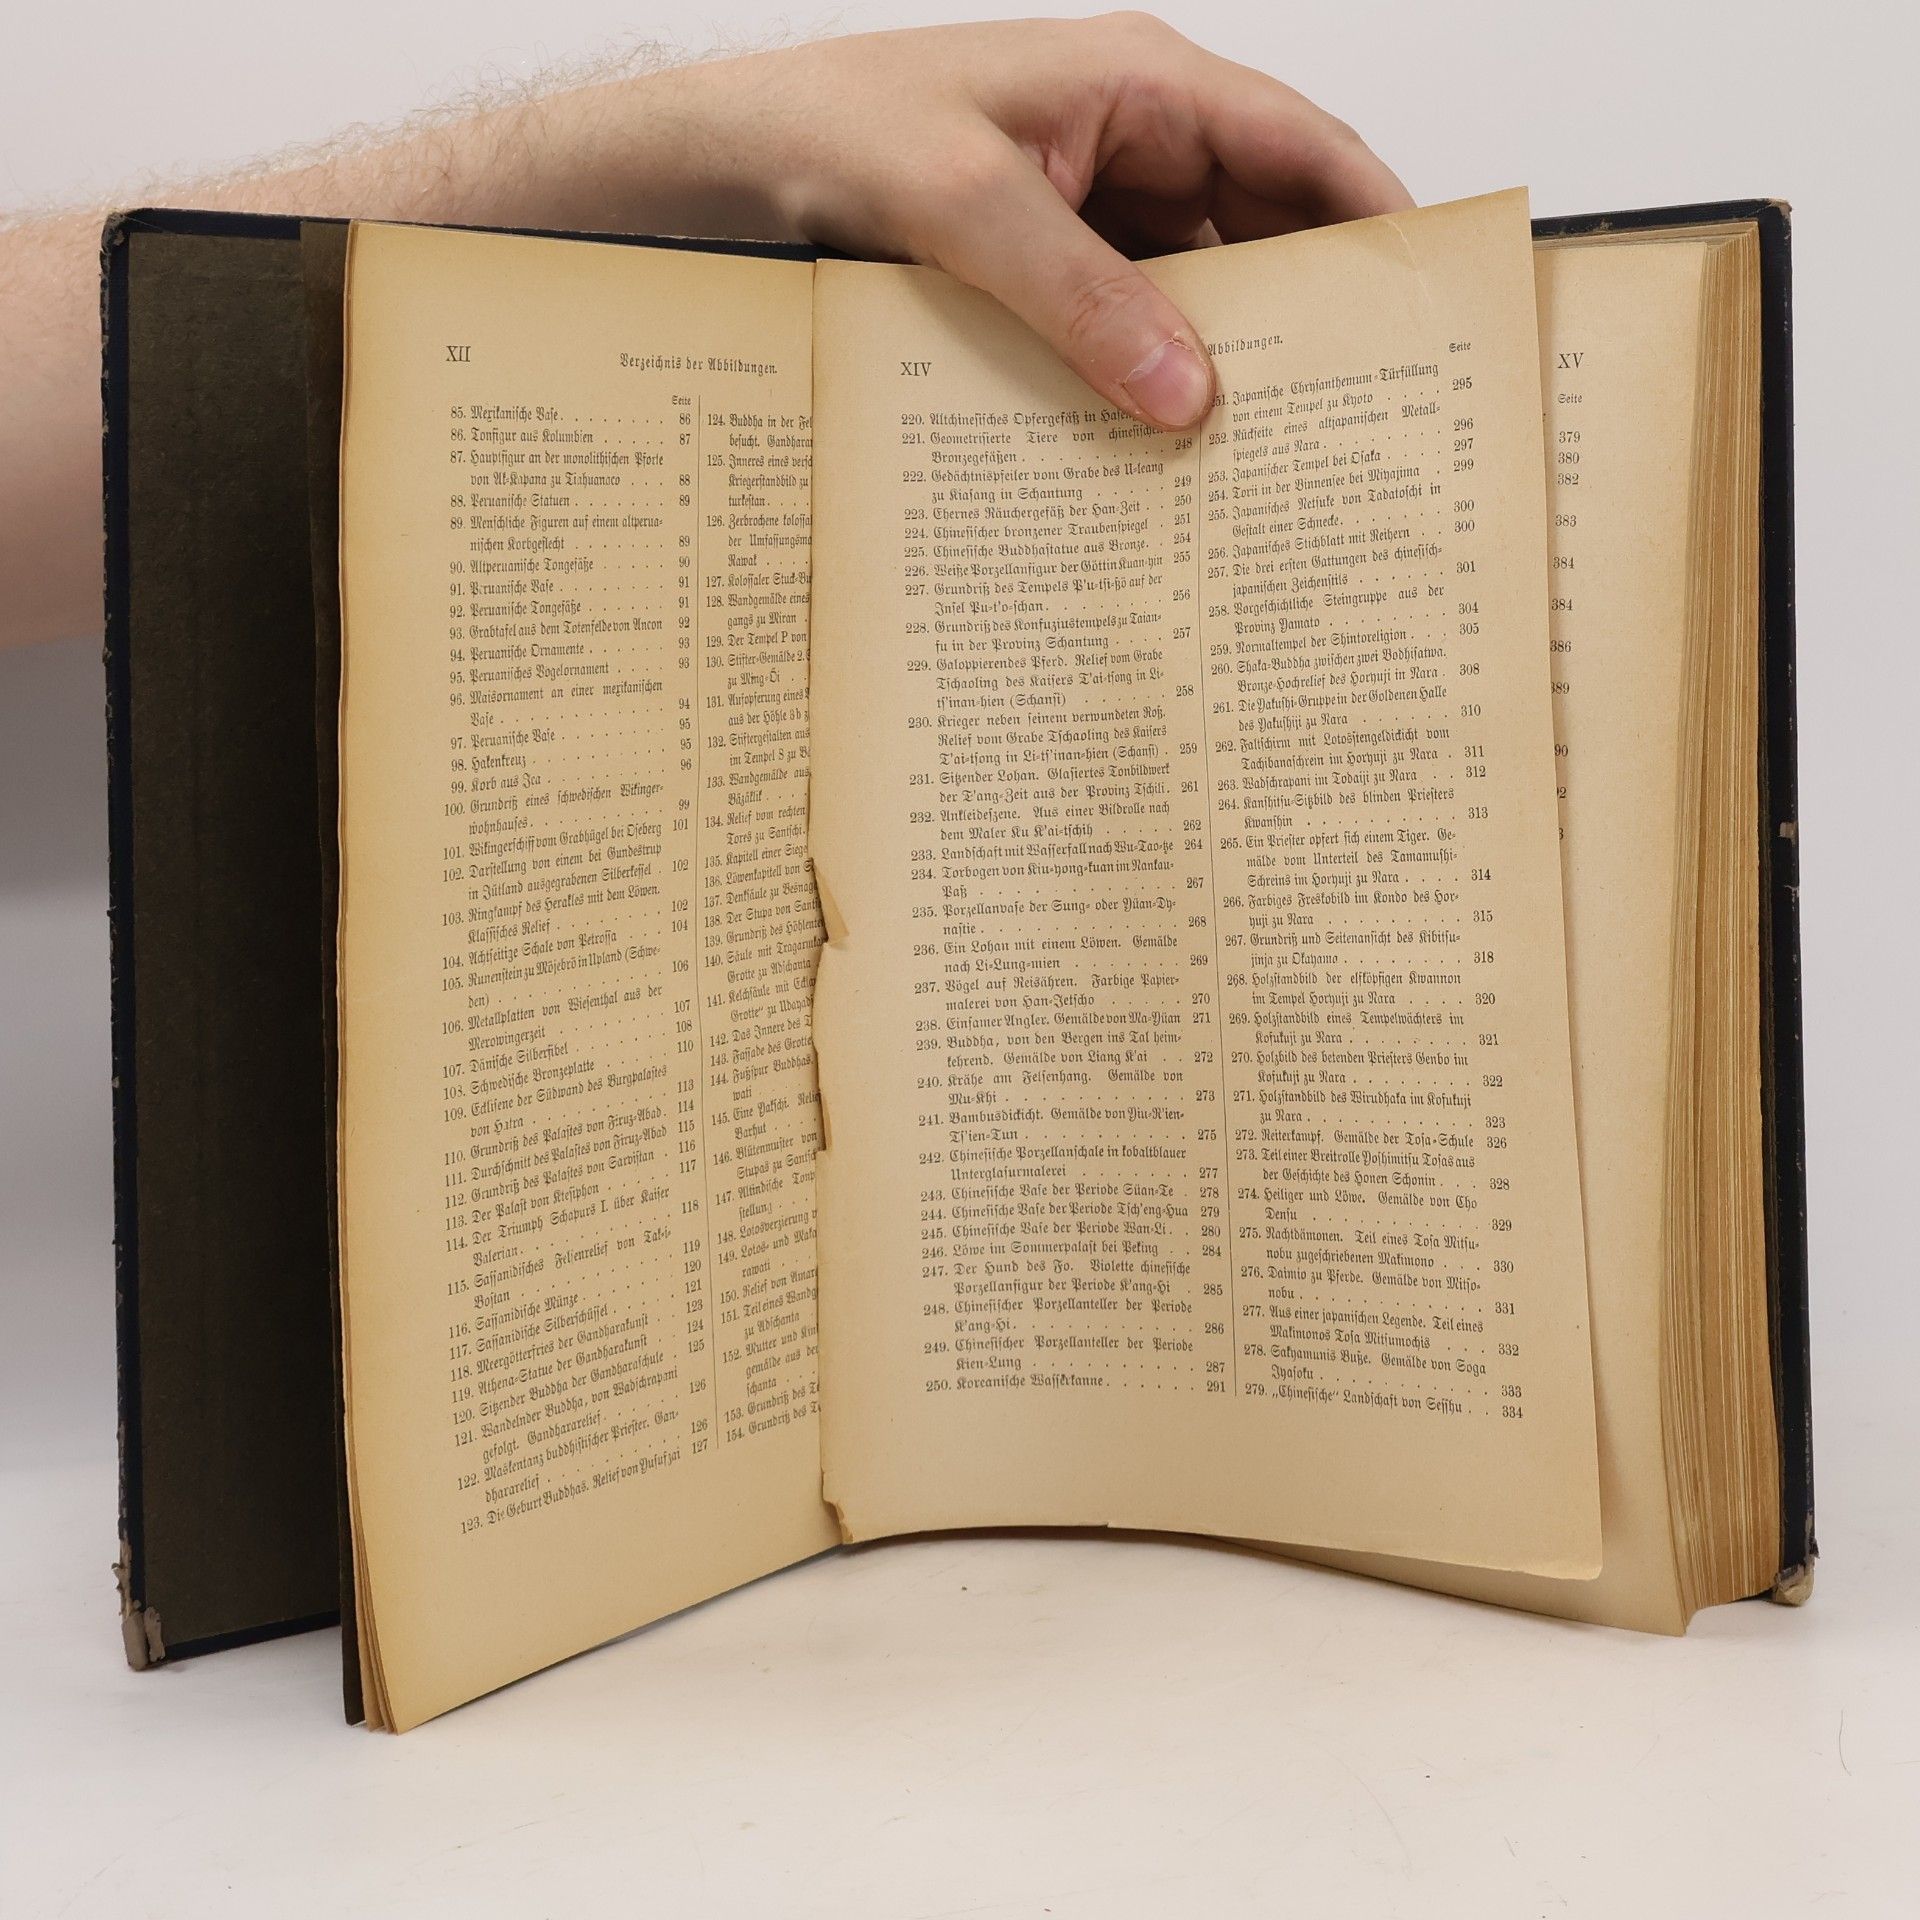 XII
Verzeichnis der Abbildungen.
Seite
85. Mexikanische Vase . . . . . . . 86
86. Tonfigur aus Kolumbien . . . . . 87
87. Hauptfigur an der monolithischen Pforte
von Ak-Kapana zu Tiahuanaco . . . 88
88. Peruanische Statuen . . . . . . 89
89. Menschliche Figuren auf einem altperua-
nischen Korbgeflecht . . . . . . . 89
90. Altperuanische Tongefäße . . . . . 90
91. Peruanische Vase . . . . . . . . 91
92. Peruanische Tongefäße . . . . . . 91
93. Grabtafel aus dem Totenfelde von Ancon 92
94. Peruanische Ornamente . . . . . . 93
95. Peruanisches Vogelornament . . . . 93
96. Maisornament an einer mexikanischen
Vase . . . . . . . . . . . . 94
97. Peruanische Vase . . . . . . . . 95
98. Hakenkreuz . . . . . . . . . . 95
99. Korb aus Ica . . . . . . . . . . 96
100. Grundriß eines schwedischen Wikinger-
wohnhauses . . . . . . . . . . 99
101. Wikingerschiff vom Grabhügel bei Oseberg 101
102. Darstellung von einem bei Gundestrup
in Jütland ausgegrabenen Silberkessel . 102
103. Ringkampf des Herakles mit dem Löwen.
Klassisches Relief . . . . . . . . 102
104. Achtseitige Schale von Petrossa . . . 104
105. Runenstein zu Möjebrö in Upland (Schwe-
den) . . . . . . . . . . . . 106
106. Metallplatten von Wiesenthal aus der
Merowingerzeit . . . . . . . . . 107
107. Dänische Silberfibel . . . . . . . 108
108. Schwedische Bronzeplatte . . . . . 110
109. Ecklisene der Südwand des Burgpalastes
von Hatra . . . . . . . . . . . 113
110. Grundriß des Palastes von Firuz-Abad . 114
111. Durchschnitt des Palastes von Firuz-Abad 115
112. Grundriß des Palastes von Sarvistan . 116
113. Der Palast von Ktesiphon . . . . . 117
114. Der Triumph Schapurs I. über Kaiser
Valerian . . . . . . . . . . . 118
115. Sassanidisches Felsenrelief von Tak-i-
Bostan . . . . . . . . . . . 119
116. Sassanidische Münze . . . . . . . 120
117. Sassanidische Silberschüssel . . . . . 121
118. Meergötterfries der Gandharakunst . . 123
119. Athena-Statue der Gandharakunst . . 124
120. Sitzender Buddha der Gandharaschule . 125
121. Wandelnder Buddha, von Wadschrapani
gefolgt. Gandhararelief . . . . . . 126
122. Maskentanz buddhistischer Priester. Gan-
dhararelief . . . . . . . . . . 126
123. Die Geburt Buddhas. Relief von Yusufzai 127
124. Buddha in der
besucht.
125. Inneres eines
Kriegerstandbild zu
turkestan . . . .
126. Zerbrochene
der
Rawak . . . .
127. Kolossaler
128. Wandgemälde eines
gangs zu Miran .
129. Der Tempel P von
130. Stifter-Gemälde
zu Ming-Öi . .
131. Aufopferung eines
aus der Höhle
132. Stiftergestalten aus
im Tempel 8 zu
133. Wandgemälde aus
Bäzäklik . . . .
134. Relief vom rechten
Tores zu Santschi .
135. Kapitell einer
136. Löwenkapitell von
137. Denksäule zu
138. Der Stupa von
139. Grundriß des
140. Säule mit
Grotte zu Adschanta
141. Kelchsäule mit
Grotte“ zu
142. Das Innere des
143. Fassade des
144. Fußspur Buddhas.
wati . . .
145. Eine Yakschi.
Barhut . . . .
146. Blütenmuster von
Stupas zu
147. Altindische
stellung . . .
148. Lotosverzierung
149. Lotos- und
rawati . . .
150. Relief von
151. Teil eines
zu Adschanta .
152. Mutter und
gemälde aus der
schanta . . .
153. Grundriß des
154. Grundriß des
XIV
Abbildungen.
220. Altchinesisches Opfergefäß in
221. Geometrisierte Tiere von chinesischen
Bronzegefäßen . . . . . . . . . 248
222. Gedächtnispfeiler vom Grabe des U-leang
zu Kiasang in Schantung . . . . . 249
223. Ehernes Räuchergefäß der Han-Zeit . . 250
224. Chinesischer bronzener Traubenspiegel . 251
225. Chinesische Buddhastatue aus Bronze. . 254
226. Weiße Porzellanfigur der Göttin Kuan-yin 255
227. Grundriß des Tempels P'u-tsi-ßö auf der
Insel Pu-t'o-schan . . . . . . . . 256
228. Grundriß des Konfuziustempels zu Taian-
fu in der Provinz Schantung . . . . 257
229. Galoppierendes Pferd. Relief vom Grabe
Tschaoling des Kaisers T'ai-tsong in Li-
ts'inan-hien (Schansi) . . . . . . 258
230. Krieger neben seinem verwundeten Roß.
Relief vom Grabe Tschaoling des Kaisers
T'ai-tsong in Li-ts'inan-hien (Schansi) . 259
231. Sitzender Lohan. Glasiertes Tonbildwerk
der T'ang-Zeit aus der Provinz Tschili . 261
232. Ankleideszene. Aus einer Bildrolle nach
dem Maler Ku K'ai-tschih . . . . . 262
233. Landschaft mit Wasserfall nach Wu-Tao-tze 264
234. Torbogen von Kiu-yong-kuan im Nankau-
Paß . . . . . . . . . . . . 267
235. Porzellanvase der Sung- oder Yüan-Dy-
nastie . . . . . . . . . . . . 268
236. Ein Lohan mit einem Löwen. Gemälde
nach Li-Lung-mien . . . . . . . 269
237. Vögel auf Reisähren. Farbige Papier-
malerei von Han-Jetscho . . . . . 270
238. Einsamer Angler. Gemälde von Ma-Yüan 271
239. Buddha, von den Bergen ins Tal heim-
kehrend. Gemälde von Liang K'ai . . 272
240. Krähe am Felsenhang. Gemälde von
Mu-Khi . . . . . . . . . . . 273
241. Bambusdickicht. Gemälde von Yiu-K'ien-
Ts'ien-Tun . . . . . . . . . . 275
242. Chinesische Porzellanschale in kobaltblauer
Unterglasurmalerei . . . . . . . 277
243. Chinesische Vase der Periode Süan-Te . 278
244. Chinesische Vase der Periode Tsch'eng-Hua 279
245. Chinesische Vase der Periode Wan-Li . . 280
246. Löwe im Sommerpalast bei Peking . . 284
247. Der Hund des Fo. Violette chinesische
Porzellanfigur der Periode K'ang-Hi . 285
248. Chinesischer Porzellanteller der Periode
K'ang-Hi . . . . . . . . . . . 286
249. Chinesischer Porzellanteller der Periode
Kien-Lung . . . . . . . . . . 287
250. Koreanische Wasserkanne . . . . . . 291
Seite
251. Japanische Chrysanthemum-Türfüllung
von einem Tempel zu Kyoto . . . . 295
252. Rückseite eines altjapanischen Metall-
spiegels aus Nara . . . . . . . . 296
253. Japanischer Tempel bei Osaka . . . . 297
254. Torii in der Binnensee bei Miyajima . 299
255. Japanisches Netsuke von Tadatoschi in
Gestalt einer Schnecke . . . . . . 300
256. Japanisches Stichblatt mit Reihern . . 300
257. Die drei ersten Gattungen des chinesisch-
japanischen Zeichenstils . . . . . . 301
258. Vorgeschichtliche Steingruppe aus der
Provinz Yamato . . . . . . . . 304
259. Normaltempel der Shintoreligion . . . 305
260. Shaka-Buddha zwischen zwei Bodhisatwa.
Bronze-Hochrelief des Horyuji in Nara . 308
261. Die Yakushi-Gruppe in der Goldenen Halle
des Yakushiji zu Nara . . . . . . 310
262. Faltschirm mit Lotosstengeldickicht vom
Tachibanaschrein im Horyuji zu Nara . 311
263. Wadschrapani im Todaiji zu Nara . . 312
264. Kanshitsu-Sitzbild des blinden Priesters
Kwanshin . . . . . . . . . . 313
265. Ein Priester opfert sich einem Tiger. Ge-
mälde vom Unterteil des Tamamushi-
Schreins im Horyuji zu Nara . . . . 314
266. Farbiges Freskobild im Kondo des Hor-
yuji zu Nara . . . . . . . . . 315
267. Grundriß und Seitenansicht des Kibitsu-
jinja zu Okayamo . . . . . . . . 318
268. Holzstandbild der elfköpfigen Kwannon
im Tempel Horyuji zu Nara . . . . 320
269. Holzstandbild eines Tempelwächters im
Kofukuji zu Nara . . . . . . . . 321
270. Holzbild des betenden Priesters Genbo im
Kofukuji zu Nara . . . . . . . . 322
271. Holzstandbild des Wirudhaka im Kofukuji
zu Nara . . . . . . . . . . . 323
272. Reiterkampf. Gemälde der Tosa-Schule 326
273. Teil einer Breitrolle Yoshimitsu Tosas aus
der Geschichte des Honen Schonin . . . 328
274. Heiliger und Löwe. Gemälde von Cho
Densu . . . . . . . . . . . 329
275. Nachtdämonen. Teil eines Tosa Mitsu-
nobu zugeschriebenen Makimono . . . 330
276. Daimio zu Pferde. Gemälde von Mitso-
nobu . . . . . . . . . . . . 331
277. Aus einer japanischen Legende. Teil eines
Makimonos Tosa Mitsumochis . . . 332
278. Sakyamunis Buße. Gemälde von Soga
Iyasoku . . . . . . . . . . . 333
279. „Chinesische“ Landschaft von Sesshu . . 334
XV
Seite
379
380
382
383
384
384
386